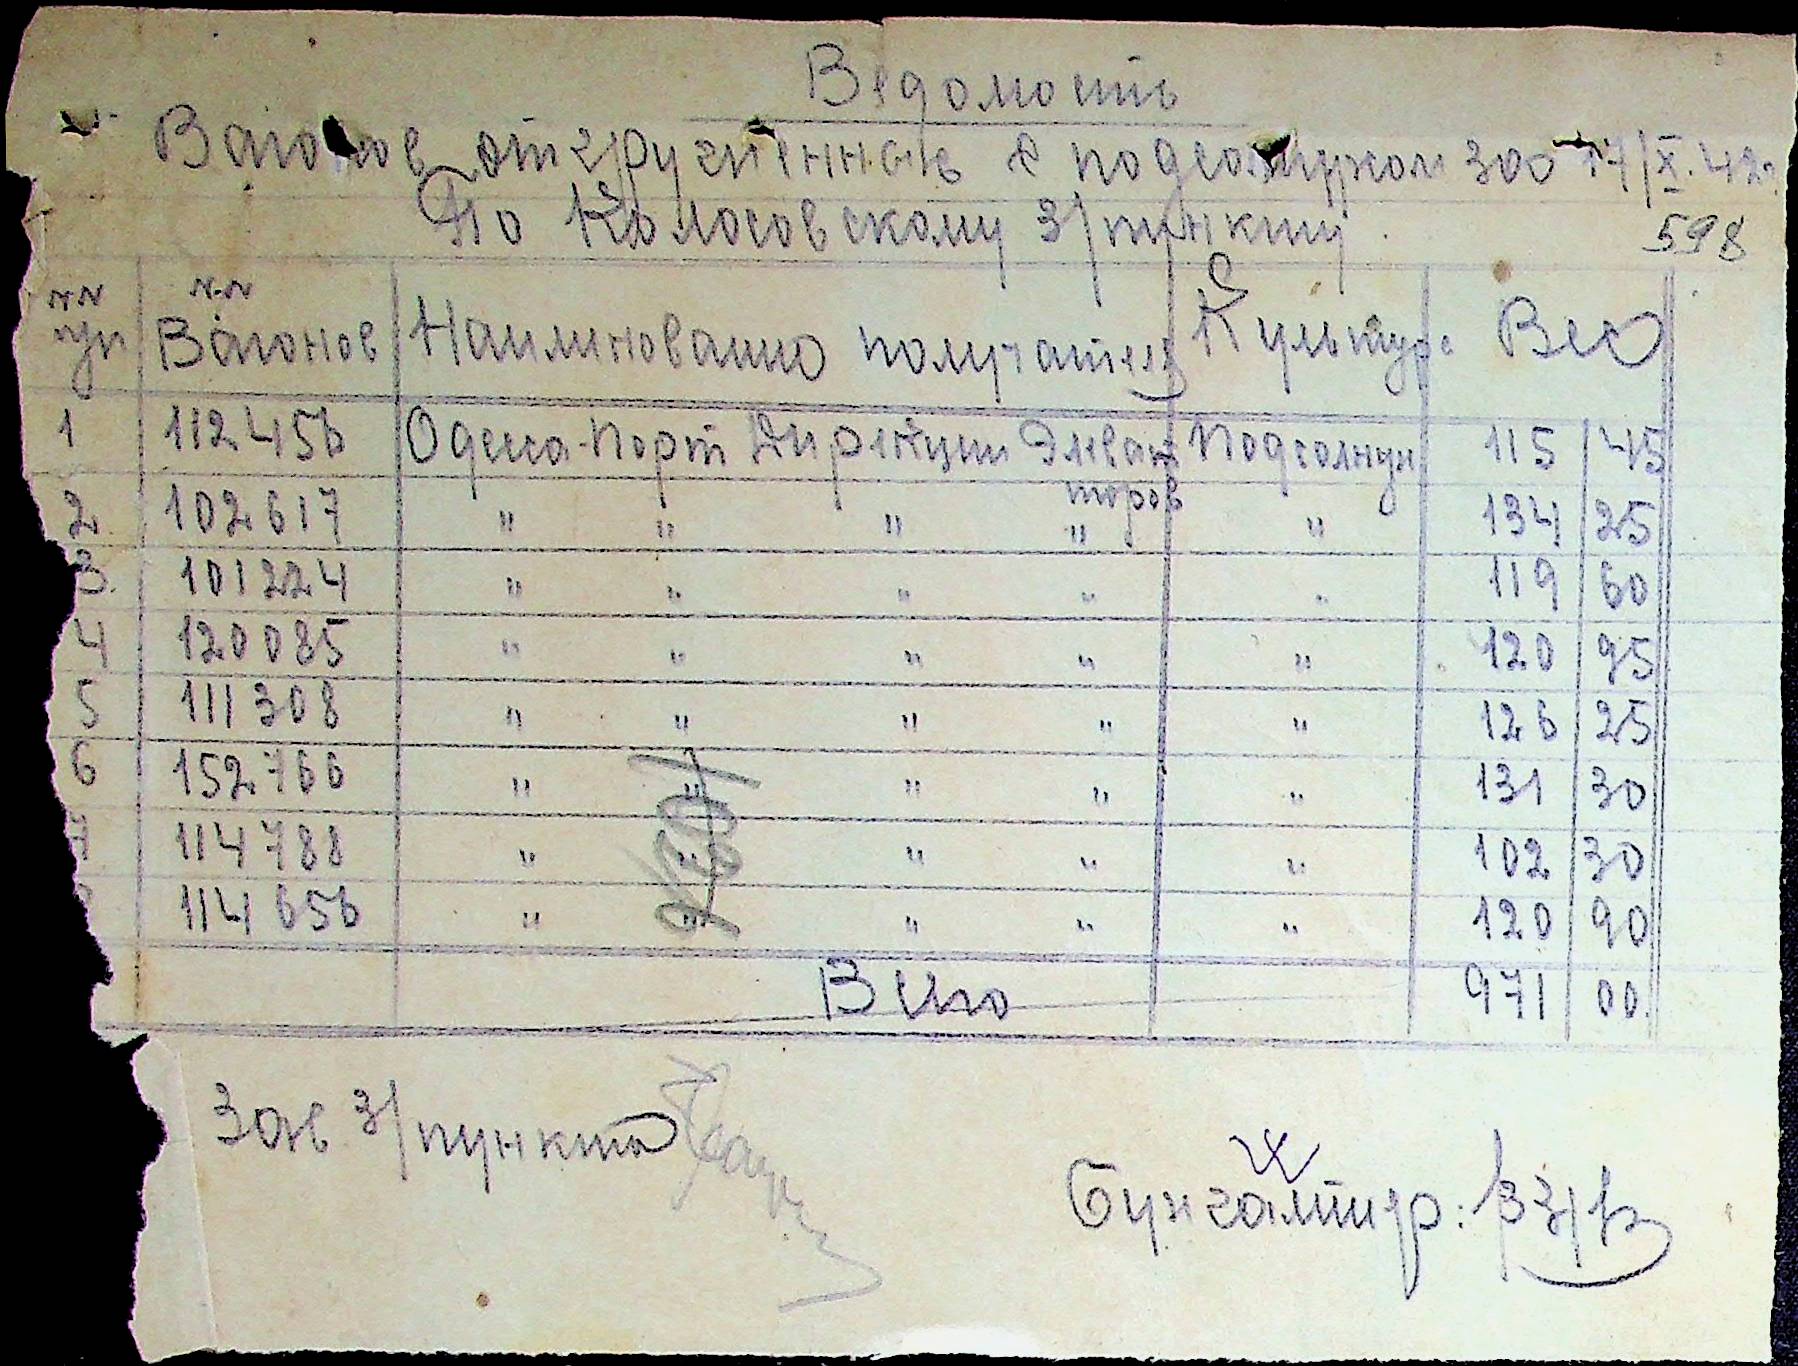 Ведомость
Вагонов отгруженных с подсолнухом зоо 17/X. 42г.
По Колосовскому З/пункту.
598
NN п/п NN Вагонов Наиминовашио получателя Культура Вес
1 112456 Одесса-Порт Дирекции Элеваторов Подсолнух 115 45
2 102617 " " " " " 134 25
3. 101224 " " " " " 119 60
4 120085 " " " " " 120 95
5 111308 " " " " " 126 25
6 152766 " " " " " 131 30
7 114788 " " " " " 102 30
114656 " " " " " 120 90
Всего 971 00.
Зав З/пункта
Бухгалтир: